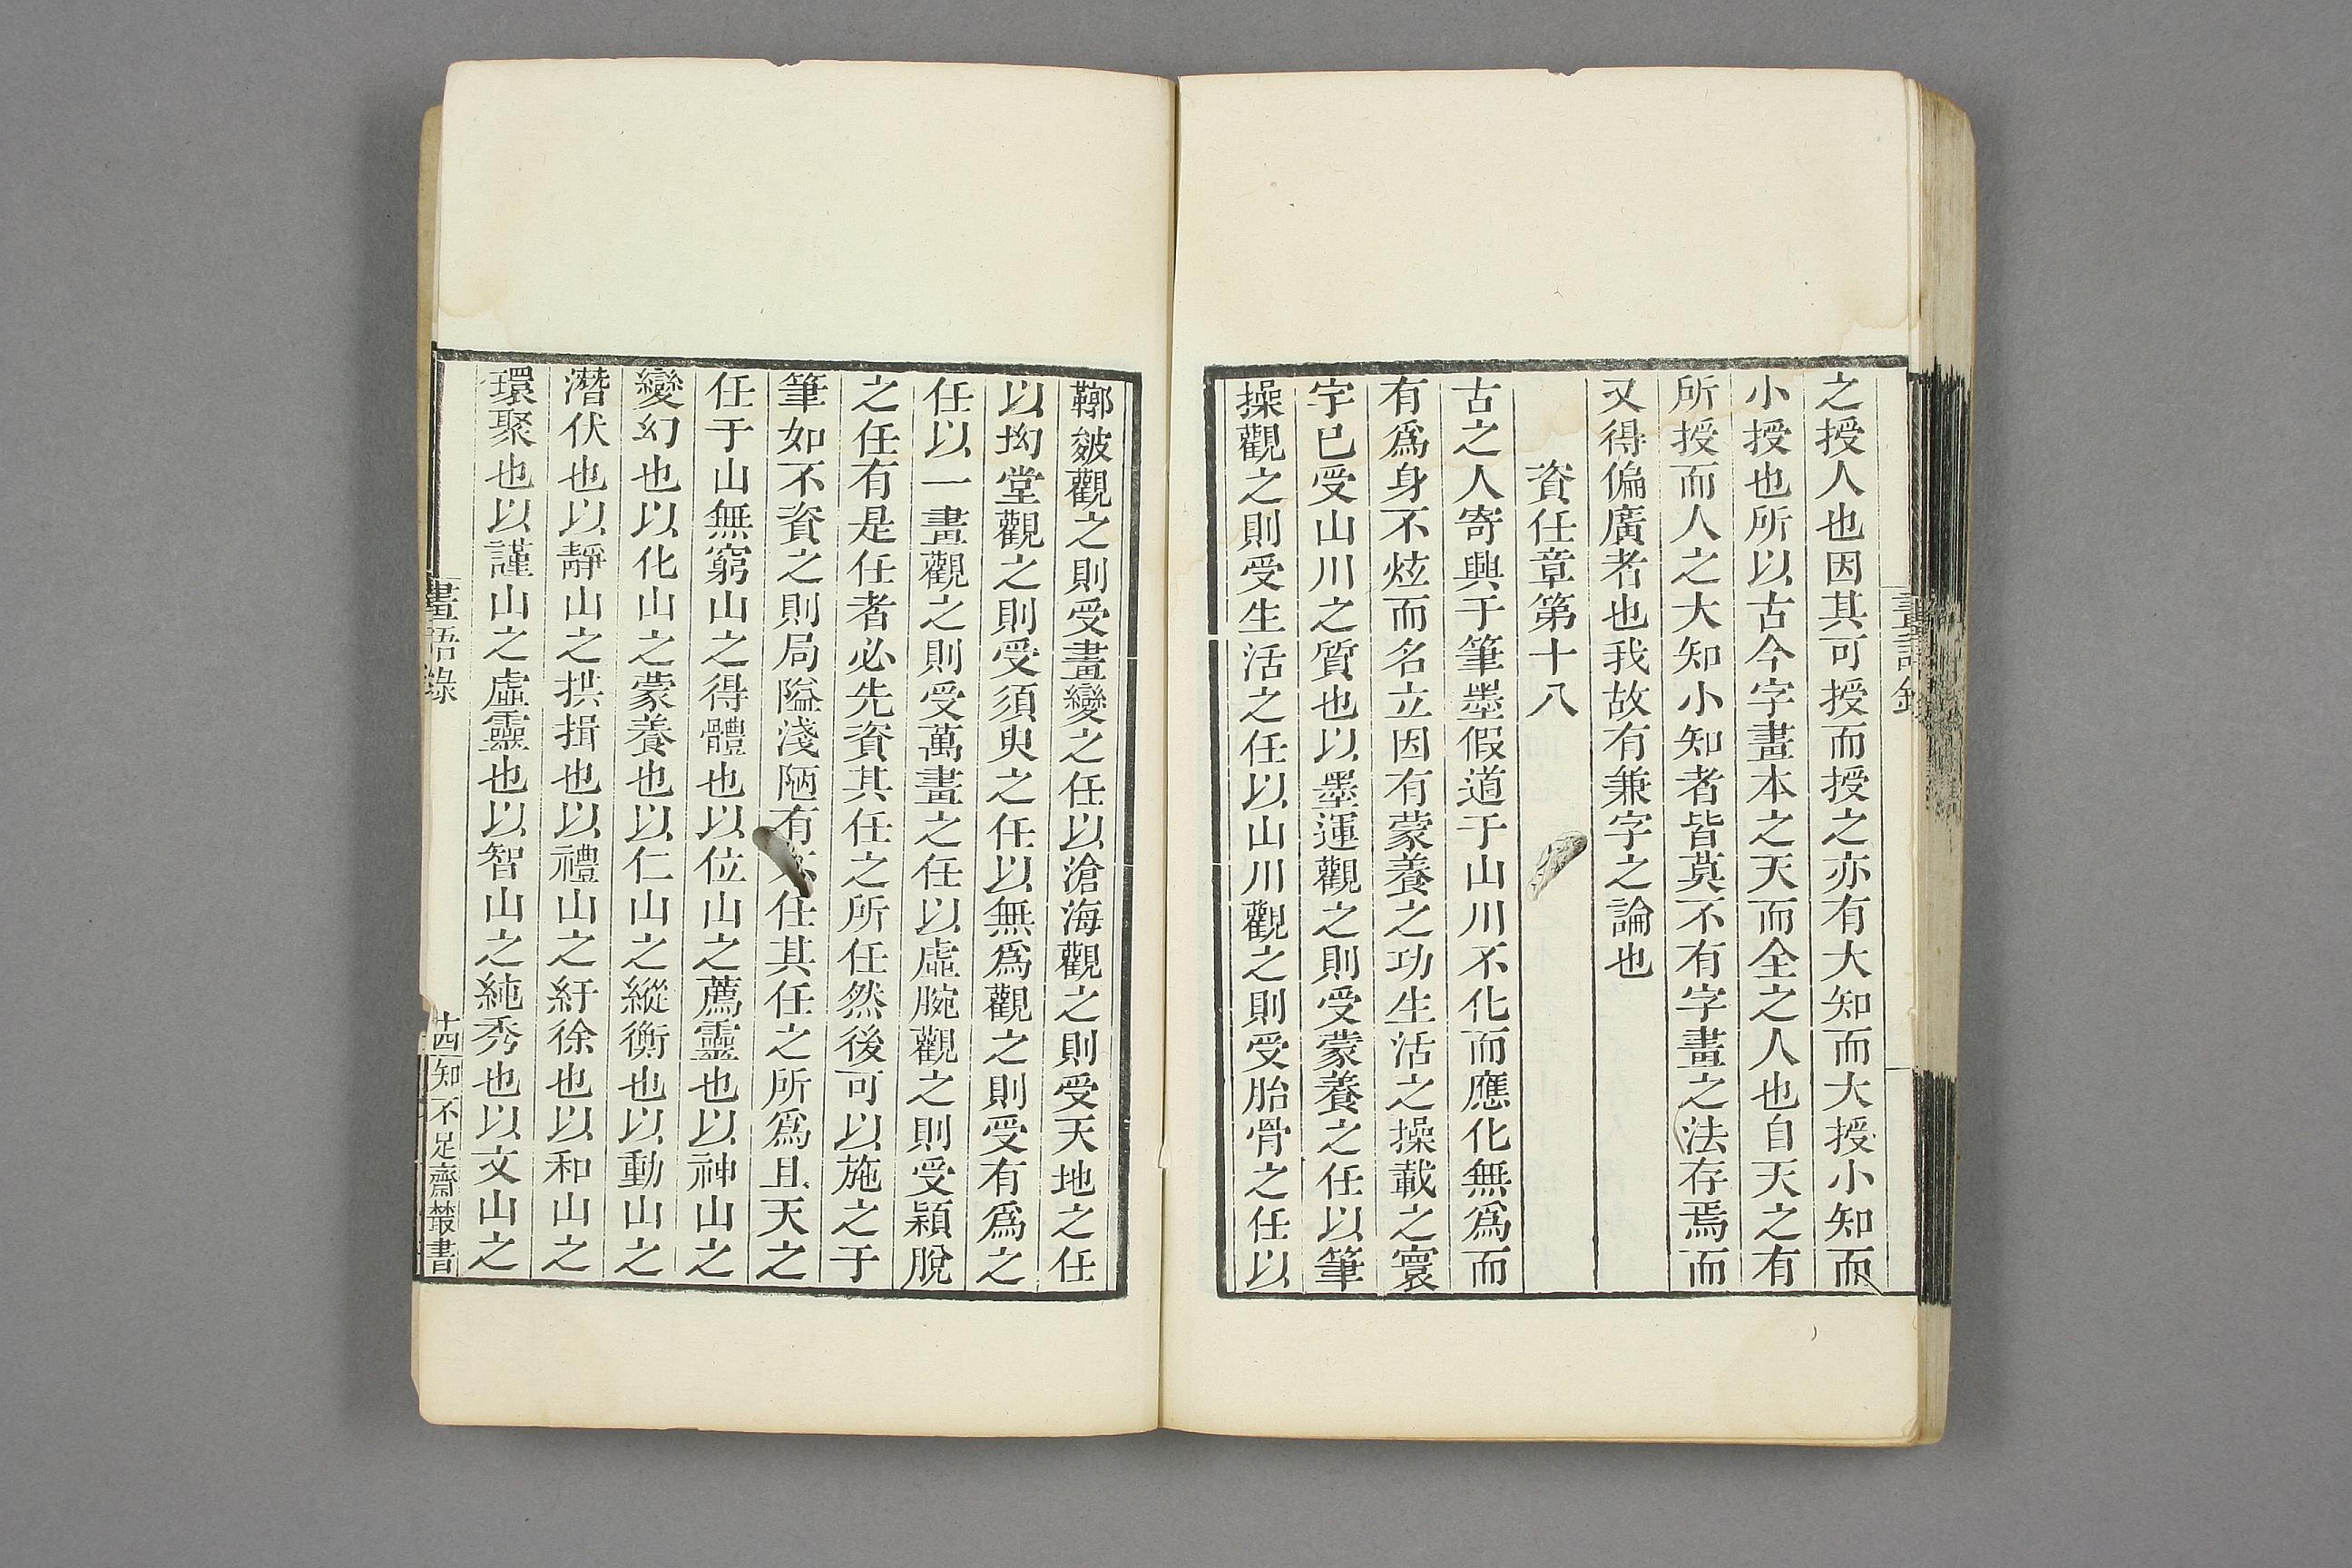 之授人也因其可授而授之亦有大知而大授小知而
小授也所以古今字畫本之天而全之人也自天之有
所授而人之大知小知者皆莫不有字畫之法存焉而
又得偏廣者也我故有兼字之論也
資任章第十八
古之人寄興于筆墨假道于山川不化而應化無爲而
有爲身不炫而名立因有蒙養之功生活之操載之寰
宇已受山川之質也以墨運觀之則受蒙養之任以筆
操觀之則受生活之任以山川觀之則受胎骨之任以
鞹皴觀之則受畫變之任以滄海觀之則受天地之任
以坳堂觀之則受須臾之任以無爲觀之則受有爲之
任以一畫觀之則受萬畫之任以虛腕觀之則受穎脫
之任有是任者必先資其任之所任然後可以施之于
筆如不資之則局隘淺陋有任其任之所爲且天之
任于山無窮山之得體也以位山之薦靈也以神山之
變幻也以化山之蒙養也以仁山之縱衡也以動山之
潛伏也以靜山之拱揖也以禮山之紆徐也以和山之
環聚也以謹山之虛靈也以智山之純秀也以文山之
畫語錄
十四
知不足齋叢書